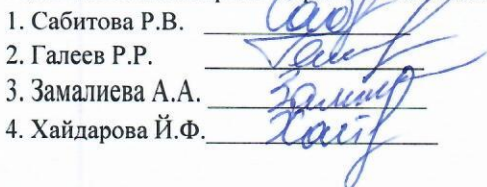 1. Сабитова Р.В.
2. Галеев Р.Р.
3. Замалиева А.А.
4. Хайдарова Й.Ф.